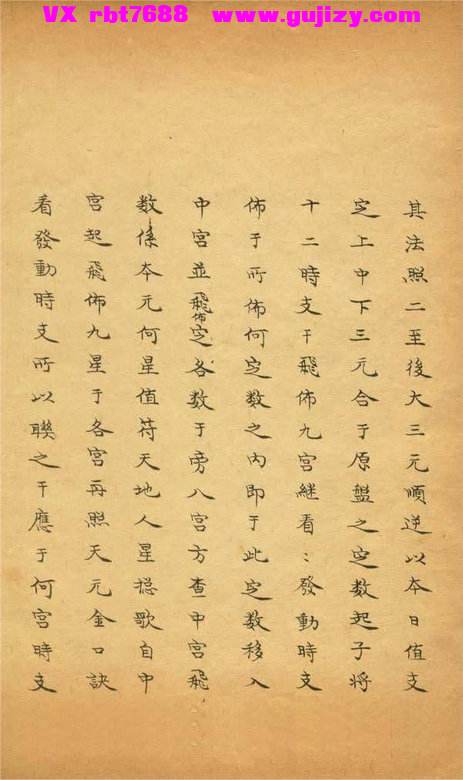 VX rbt7688 www.gujizy.com
其法照二至後大三元順逆以本日值支
定上中下三元合于原盤之定数起子將
十二時支干飛佈九宮継看：發動時支
佈于所佈何定数之内即于此定数移入
中宮並飛佈定各数于旁八宮方查中宮飛
数係本元何星值符天地人星揔歌自中
宮起飛佈九星于各宮再照天元金口訣
看發動時支所以聯之干應于何宮時支